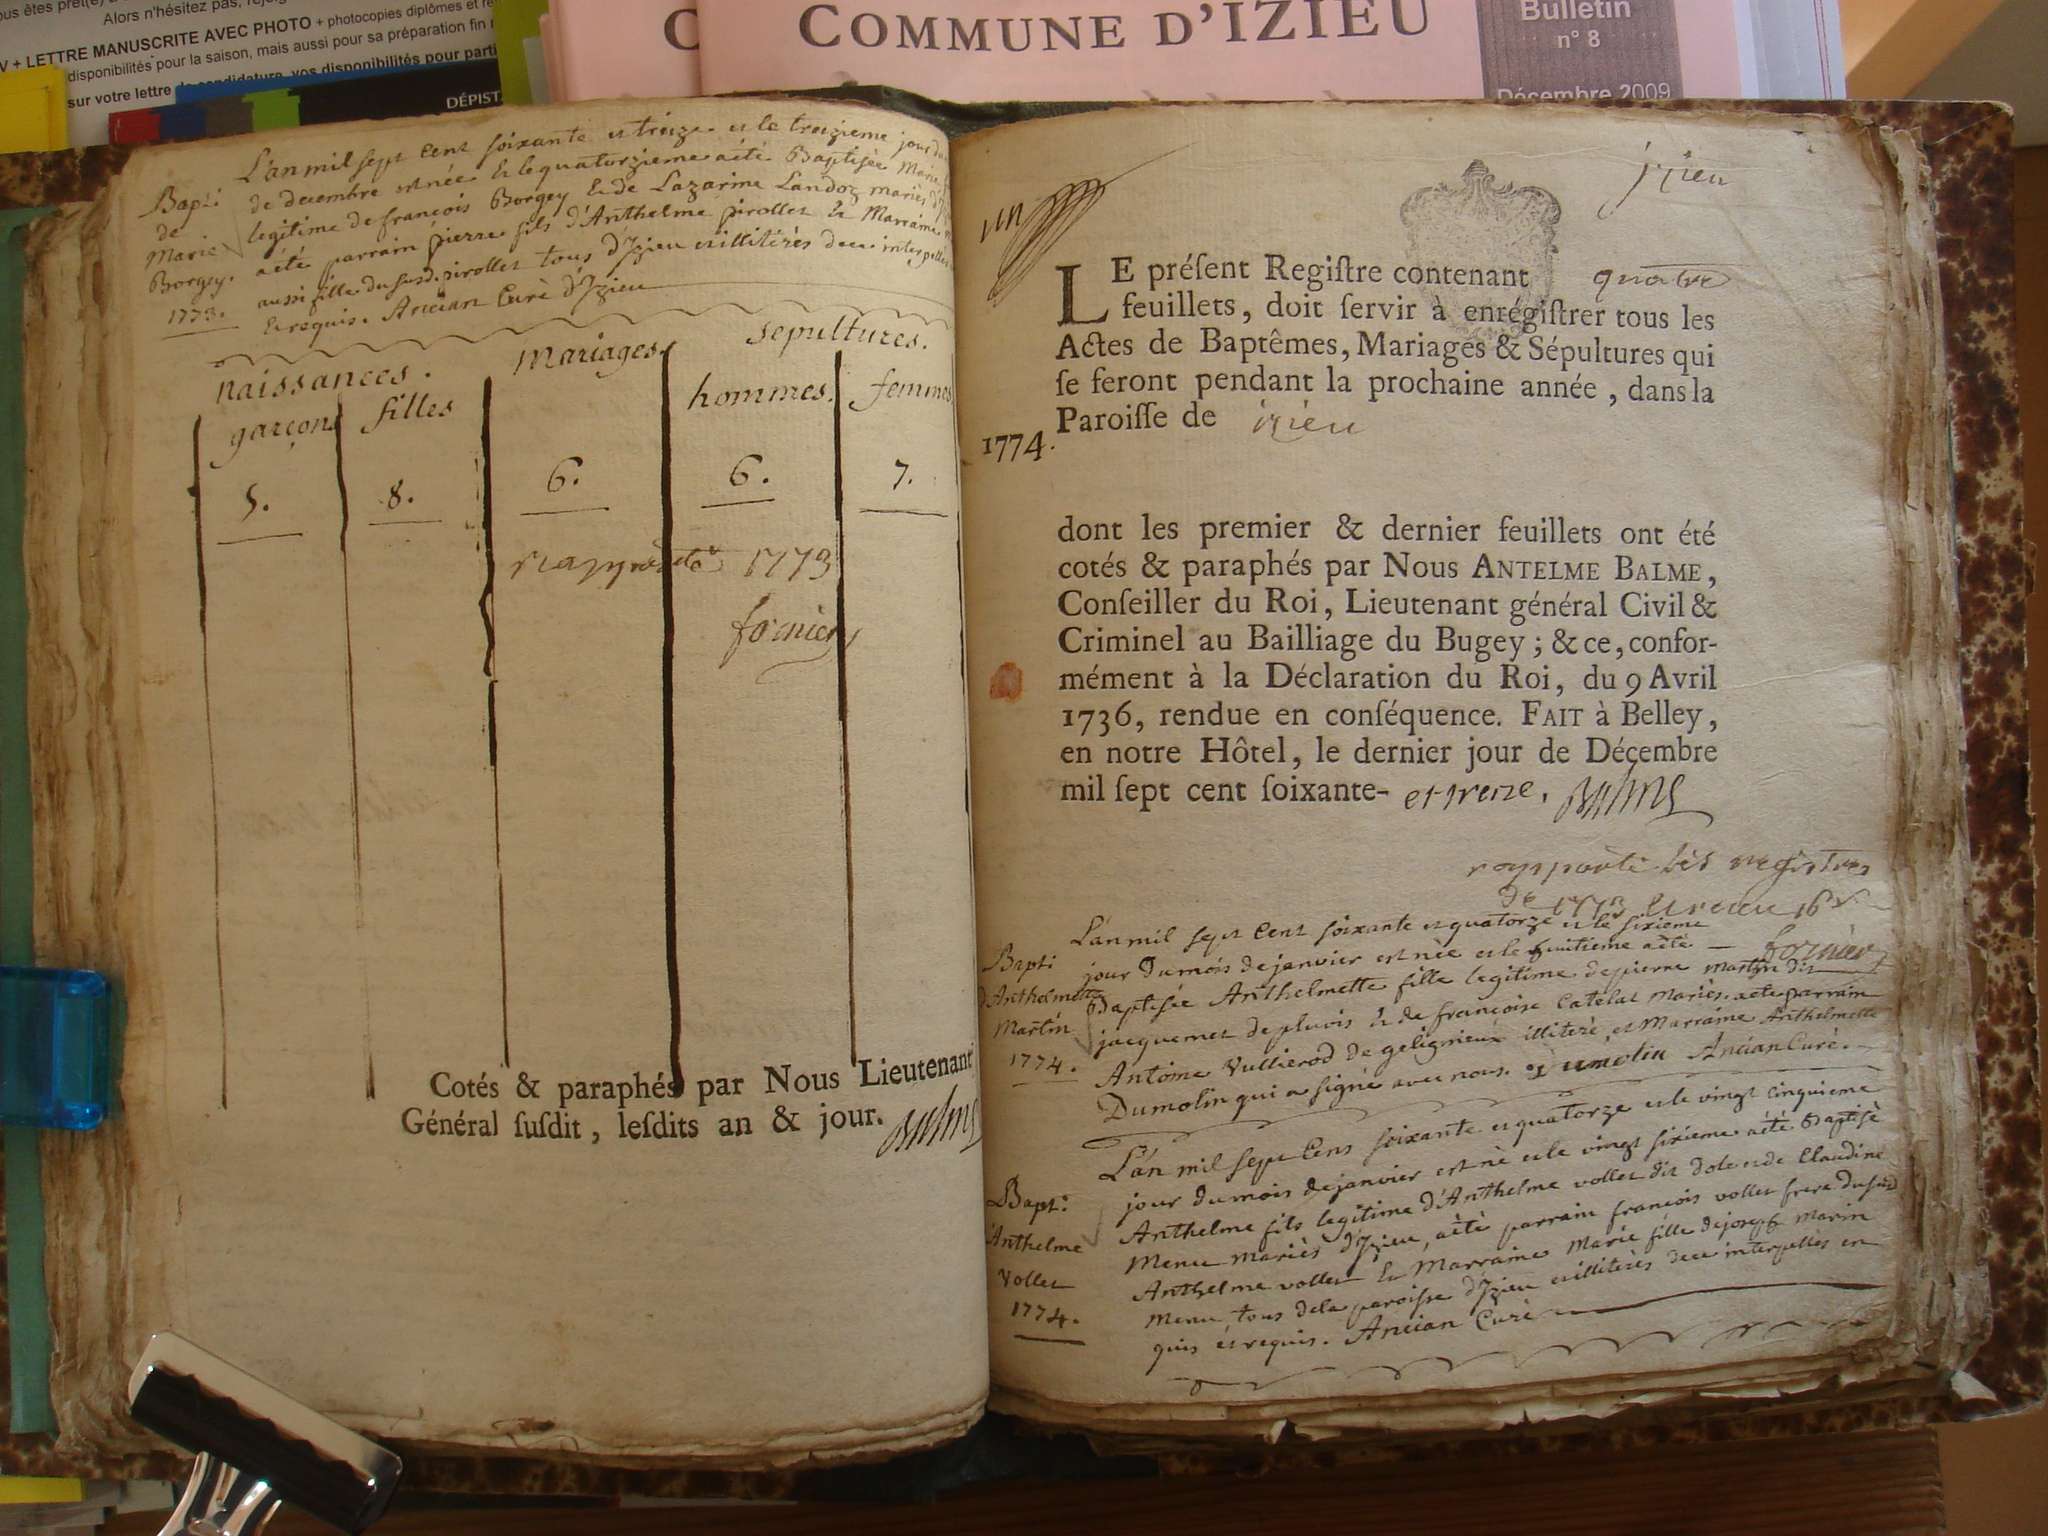 Alors n'hésitez pas,
V + LETTRE MANUSCRITE AVEC PHOTO + photocopies diplômes et
disponibilités pour la saison, mais aussi pour sa préparation fin
sur votre lettre de candidature, vos disponibilités pour parti
DÉPIST
C
COMMUNE D'IZIEU
Bulletin
n° 8
Décembre 2009
L'an mil sept Cent soixante et treize et le treizieme jour du
de decembre est née et le quatorzieme a été Baptisée Marie
legitime de françois Borgey et de Lazarine Landoz mariés d'
a été parrain pierre fils d'Anthelme pirollet et Marraine
aussi fille du susd. pirollet tous d'Izieu et illitérès de ce interpellés
et requis. Ancian Curè d'Izieu
Bapt:
de
Marie
Borgey.
1773.
naissances.
mariages.
sepultures.
garçons
filles
hommes.
femmes
5.
8.
6.
6.
7.
1773
fornier
Cotés & paraphés par Nous Lieutenant
Général ſuſdit, leſdits an & jour. Balme
izieu
un
LE préſent Regiſtre contenant quatre
feuillets, doit ſervir à enrégiſtrer tous les
Actes de Baptêmes, Mariages & Sépultures qui
ſe feront pendant la prochaine année, dans la
Paroiſſe de izieu
1774.
dont les premier & dernier feuillets ont été
cotés & paraphés par Nous ANTELME BALME,
Conſeiller du Roi, Lieutenant général Civil &
Criminel au Bailliage du Bugey ; & ce, confor-
mément à la Déclaration du Roi, du 9 Avril
1736, rendue en conſéquence. FAIT à Belley,
en notre Hôtel, le dernier jour de Décembre
mil ſept cent ſoixante- et treize. Balme
rapporté les registres
de 1773
fornier
Bapt:
d'Anthelmette
Martin
1774.
L'an mil sept Cent soixante et quatorze et le sixieme
jour du mois de janvier est née et le huitieme a été
Baptisée Anthelmette fille legitime de pierre Martin dit
jacquemet de pluvis et de françoise Catelat Mariès. a été parrain
Antoine Vullierod de gelignieux illiterè, et Marraine Anthelmette
Dumolin qui a signé avec nous. Dumolin Ancian Curè.
Bapt:
Anthelme
Vollet
1774.
L'an mil sept Cens soixante et quatorze et le vingt cinquieme
jour du mois de janvier est né et le vingt sixieme a été Baptisé
Anthelme fils legitime d'Anthelme vollet dit dole et de Claudine
Menu mariès d'Izieu, a été parrain francois vollet frere dusud
Anthelme vollet et Marraine Marie fille de joseph Marin
Menu, tous de la paroisse d'Izieu et illiterès de ce interpellés en
quis et requis. Ancian Curè